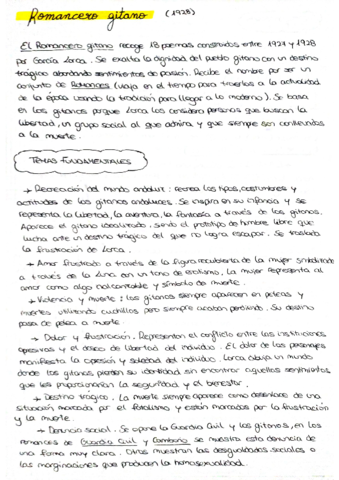 Romancero gitano (1928)
El Romancero gitano recoge 18 poemas construidos entre 1924 y 1928
por García Lorca. Se exalta la dignidad del pueblo gitano con un destino
trágico abordando sentimientos de pasión. Recibe el nombre por ser un
conjunto de Romances (viaja en el tiempo para traerlos a la actualidad
de la época usando la tradición para llegar a lo moderno). Se basa
en los gitanos porque Lorca los considera personas que buscan la
libertad, un grupo social al que admira y que siempre son conducidos
a la muerte.
TEMAS FUNDAMENTALES
→ Recreación del mundo andaluz: recrea los tipos, costumbres y
actitudes de los gitanos andaluces. Se inspira en su infancia y se
representa la libertad, la aventura, la fantasía a través de los gitanos.
Aparece el gitano idealizado, siendo el prototipo de hombre libre que
lucha ante un destino trágico del que no logra escapar. Se traslada
la frustración de Lorca.
→ Amor frustrado a través de la figura de la mujer simbolizada
a través de la luna con un tono de erotismo. La mujer representa al
amor como algo inalcanzable y símbolo de muerte.
→ Violencia y muerte: los gitanos siempre aparecen en peleas y
muertes utilizando cuchillos pero siempre acaban perdiendo. Su destino
pasa de pelea a muerte.
→ Dolor y frustración. Representan el conflicto entre las instituciones
opresivas y el deseo de libertad del individuo. El dolor de los personajes
manifiesta la opresión y soledad del individuo. Lorca dibuja un mundo
donde los gitanos pierden su identidad sin encontrar aquellos sentimientos
que les proporcionarían la seguridad y el bienestar.
→ Destino trágico. La muerte siempre aparece como desenlace de una
situación marcada por el fatalismo y están marcados por la frustración
y la muerte.
→ Denuncia social. Se opone la Guardia Civil y los gitanos, en los
romances de Guardia Civil y Camborio se muestra esta denuncia de
una forma muy clara. Otros muestran las desigualdades sociales o
las marginaciones que producen la homosexualidad.